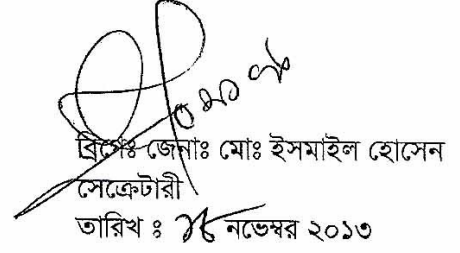 ব্রিগেঃ জেনাঃ মোঃ ইসমাইল হোসেন
সেক্রেটারী
তারিখ ঃ নভেম্বর ২০১৩